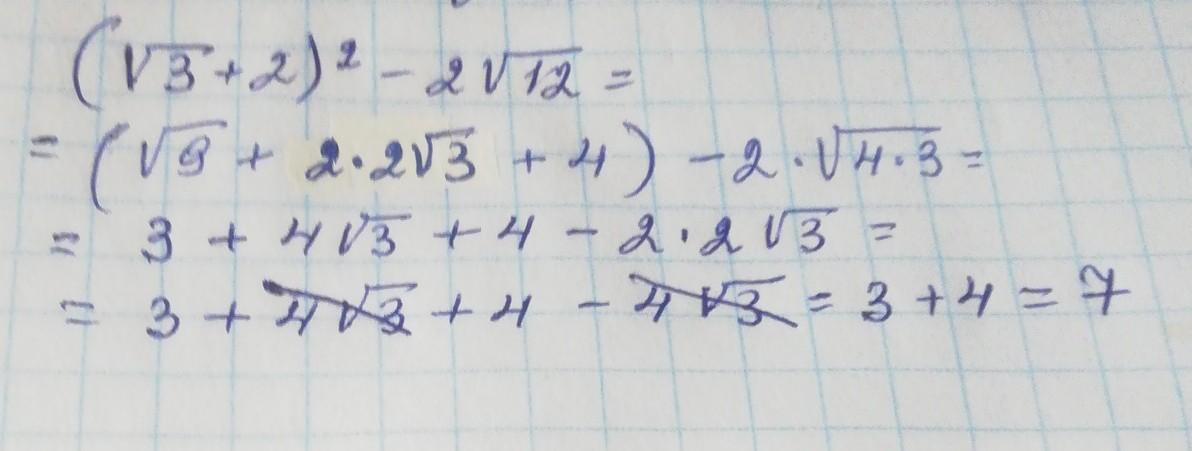 (√3+2)² - 2√12 =
= (√9 + 2·2√3 + 4) - 2·√4·3 =
= 3 + 4√3 + 4 - 2·2√3 =
= 3 + 4√3 + 4 - 4√3 = 3 + 4 = 7